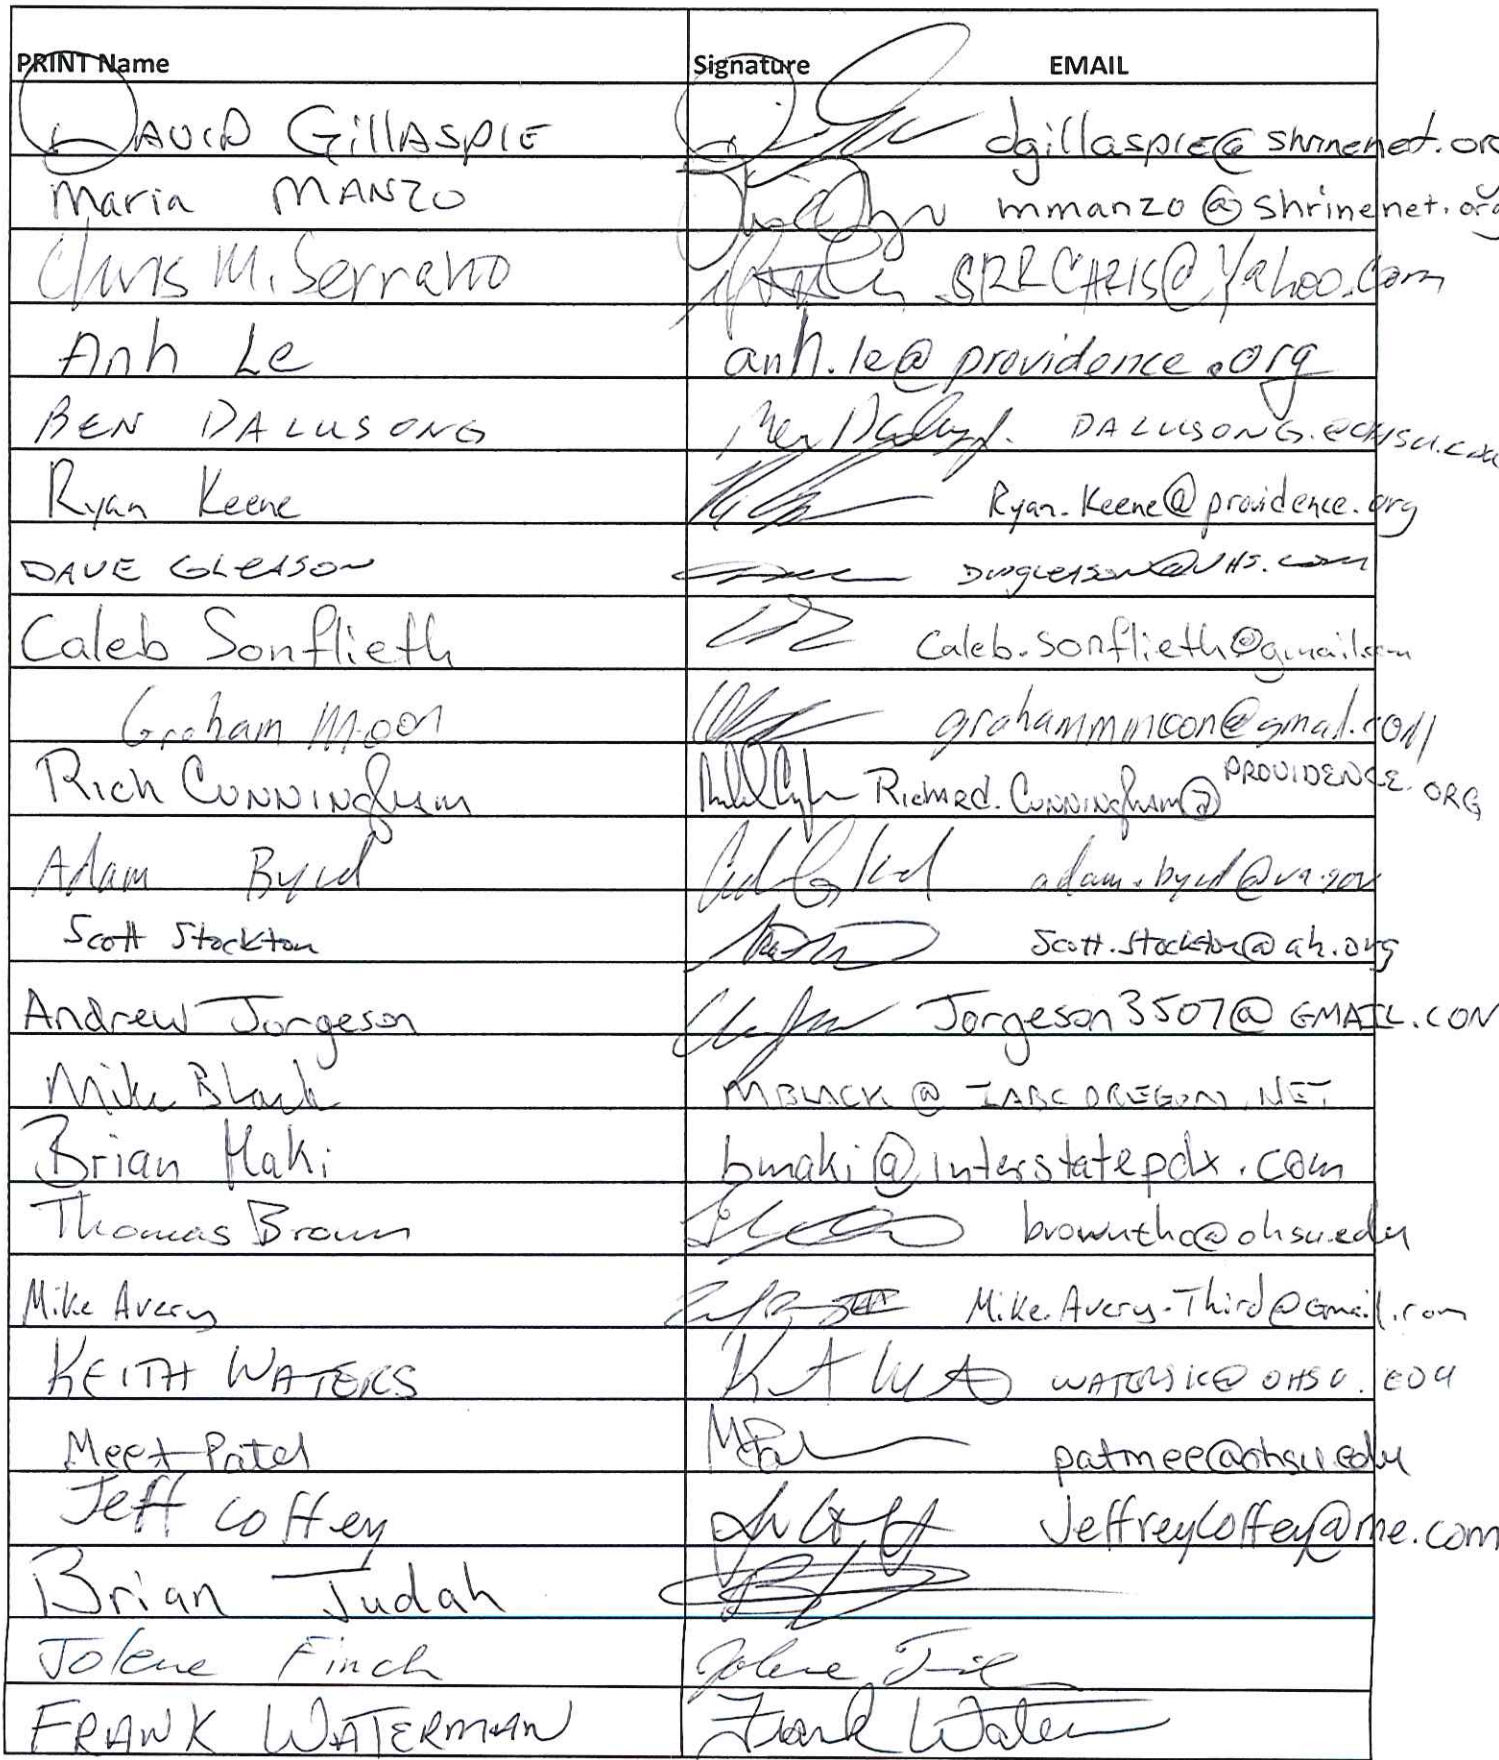 PRINT Name Signature EMAIL
DAVID GillASPIE dgillaspie@shrinenet.org
Maria MANZO mmanzo@shrinenet.org
Chris M. Serrano SRRCHRIS@Yahoo.Com
Anh Le anh.le@providence.org
BEN DALUSONG
Ryan Keene Ryan.Keene@providence.org
DAVE GLEASON
Caleb Sonflieth Caleb.sonflieth@gmail.com
Graham Moon
Rich CUNNINgham Richard.CUNNINgham@PROVIDENCE.ORG
Adam Byrd adam.byrd@va.gov
Scott Stockton Scott.Stockton@ah.org
Andrew Jorgeson Jorgeson3507@GMAIL.COM
Mike Black MBLACK@IABCOREGON.NET
Brian Maki bmaki@interstatepdx.com
Thomas Brown browntho@ohsu.edu
Mike Avery Mike.Avery.Third@Gmail.com
KEITH WATERS WATERSKE@OHSU.EDU
Meet Patel patmee@ohsu.edu
Jeff Coffey JeffreyCoffey@me.com
Brian Judah
Jolene Finch Jolene
FRANK WATERMAN Frank